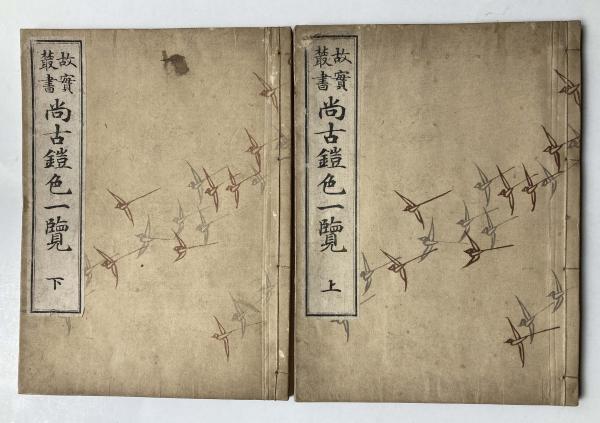 故實
叢書
尚古鎧色一覽
下
故實
叢書
尚古鎧色一覽
上